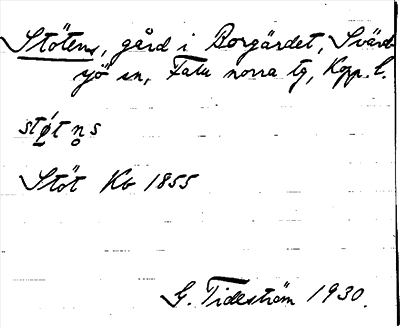 Stötens, gård i Borgärdet, Svärd-
sjö sn, Falu norra tg, Kopp. l.
støt n̥s
Stöt Kb 1855
G. Tideström 1930.